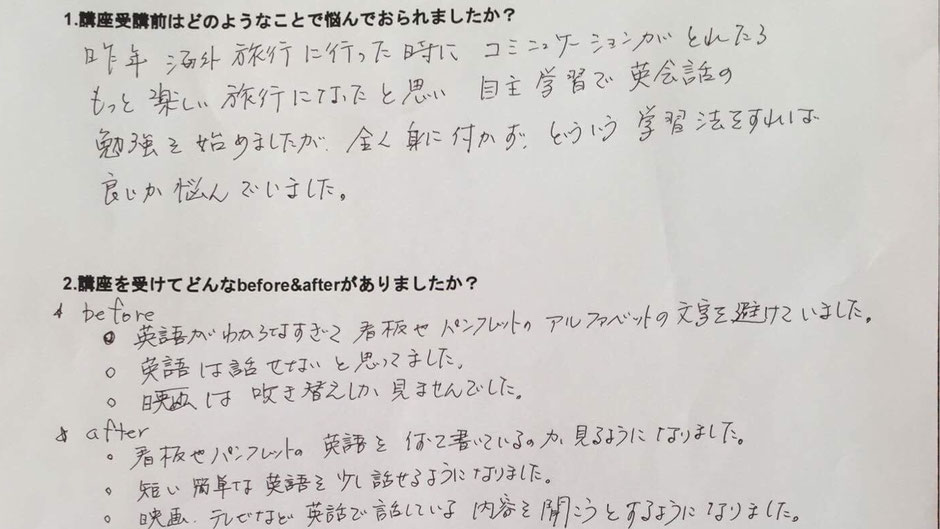 1.講座受講前はどのようなことで悩んでおられましたか？
昨年 海外旅行に行った時に コミニュケーションがとれたら
もっと楽しい旅行になったと思い 自主学習で英会話の
勉強を始めましたが、全く身に付かず、どういう学習法をすれば
良いか悩んでいました。
2.講座を受けてどんなbefore&afterがありましたか？
& before
○ 英語がわからなすぎて看板やパンフレットのアルファベットの文字を避けていました。
○ 英語は話せないと思ってました。
○ 映画は吹き替えしか見ませんでした。
& after
○ 看板やパンフレットの英語を何て書いているのか見るようになりました。
○ 短い簡単な英語を少し話せるようになりました。
○ 映画、テレビなど英語で話している内容を聞こうとするようになりました。